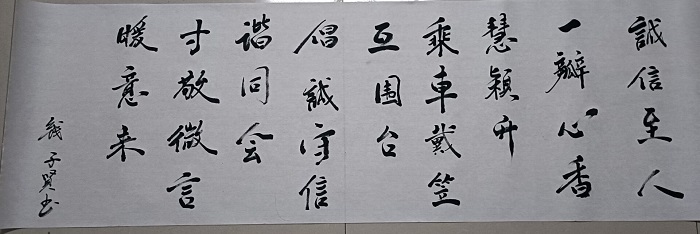 誠信至人
一瓣心香
慧穎升
乘車戴笠
互围台
倡誠守信
谐同会
寸敬微言
暖意来
子贤书